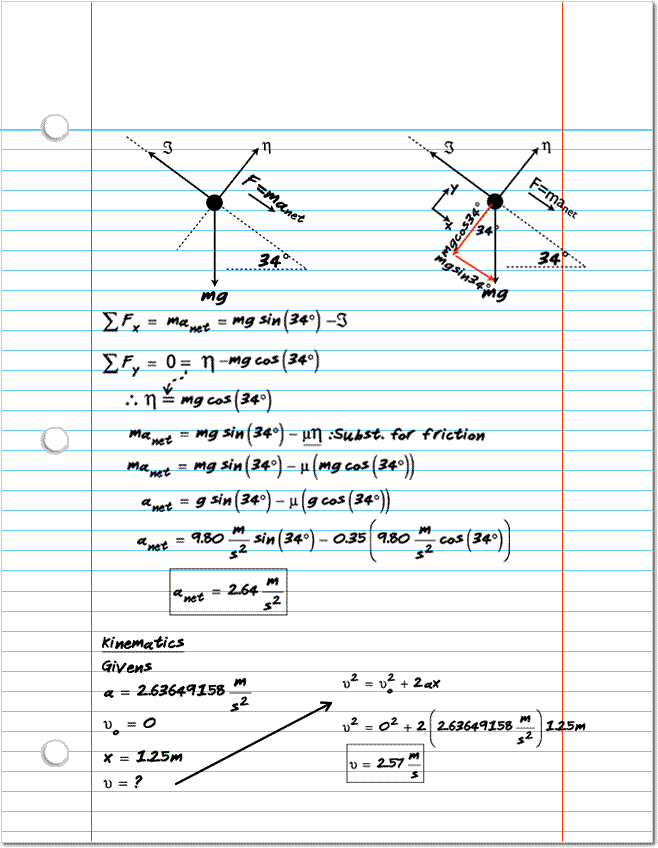 ℑ η ℑ η
F=ma_net F=ma_net
y
x
mgcos34° 34°
34° mgsin34° 34°
mg mg
∑F_x = ma_net = mg sin(34°) − ℑ
∑F_y = 0 = η − mg cos(34°)
∴ η = mg cos(34°)
ma_net = mg sin(34°) − μη :Subst. for friction
ma_net = mg sin(34°) − μ(mg cos(34°))
a_net = g sin(34°) − μ(g cos(34°))
a_net = 9.80 m/s² sin(34°) − 0.35(9.80 m/s² cos(34°))
a_net = 2.64 m/s²
Kinematics
Givens
a = 2.63649158 m/s²
υ_o = 0
x = 1.25m
υ = ?
υ² = υ_o² + 2ax
υ² = 0² + 2(2.63649158 m/s²)1.25m
υ = 2.57 m/s